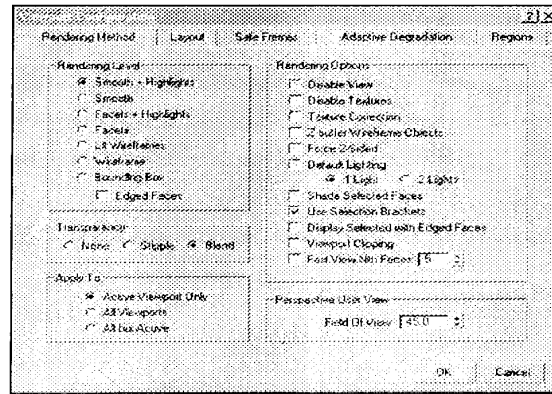 Rendering Method Layout Safe Frames Adaptive Degradation Regions
Rendering Level
Smooth + Highlights
Smooth
Facets + Highlights
Facets
Lit Wireframes
Wireframe
Bounding Box
Edged Faces
Transparency
None Stipple Blend
Apply To
Active Viewport Only
All Viewports
All but Active
Rendering Options
Disable View
Disable Textures
Texture Correction
Z-buffer Wireframe Objects
Force 2-Sided
Default Lighting
1 Light 2 Lights
Shade Selected Faces
Use Selection Brackets
Display Selected with Edged Faces
Viewport Clipping
Fast View Nth Faces 5
Perspective User View
Field Of View 45.0
OK Cancel